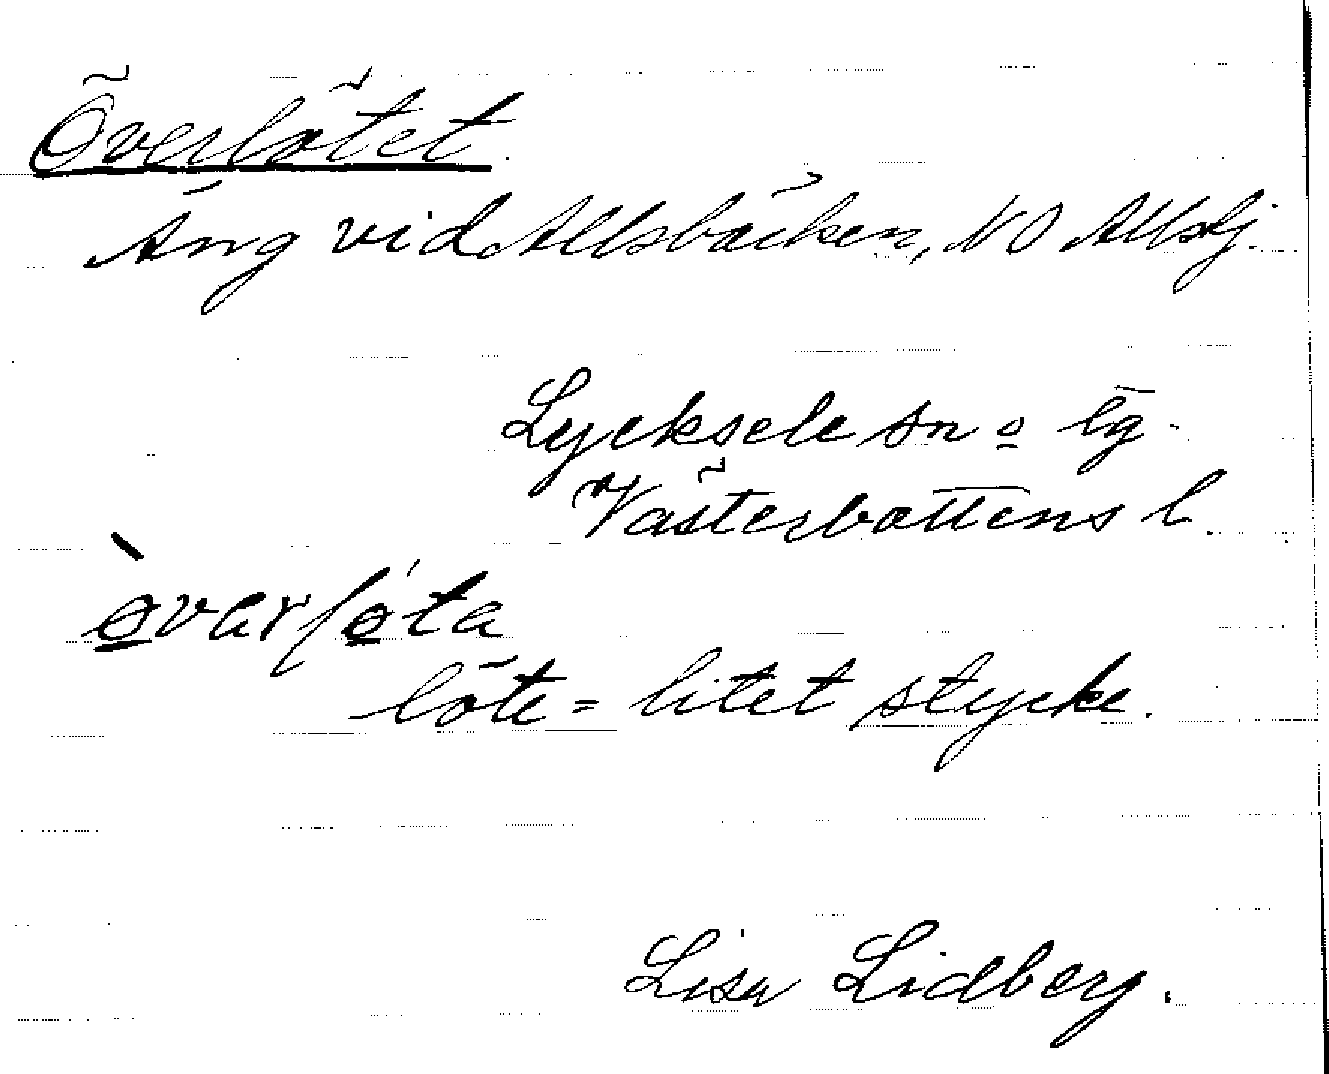 Överlötet.
Äng vid Allsbäcken, NO Allsj.
Lycksele sn o lg.
Västerbottens l.
òvarlóta
löte = litet stycke.
Lisa Lidberg.